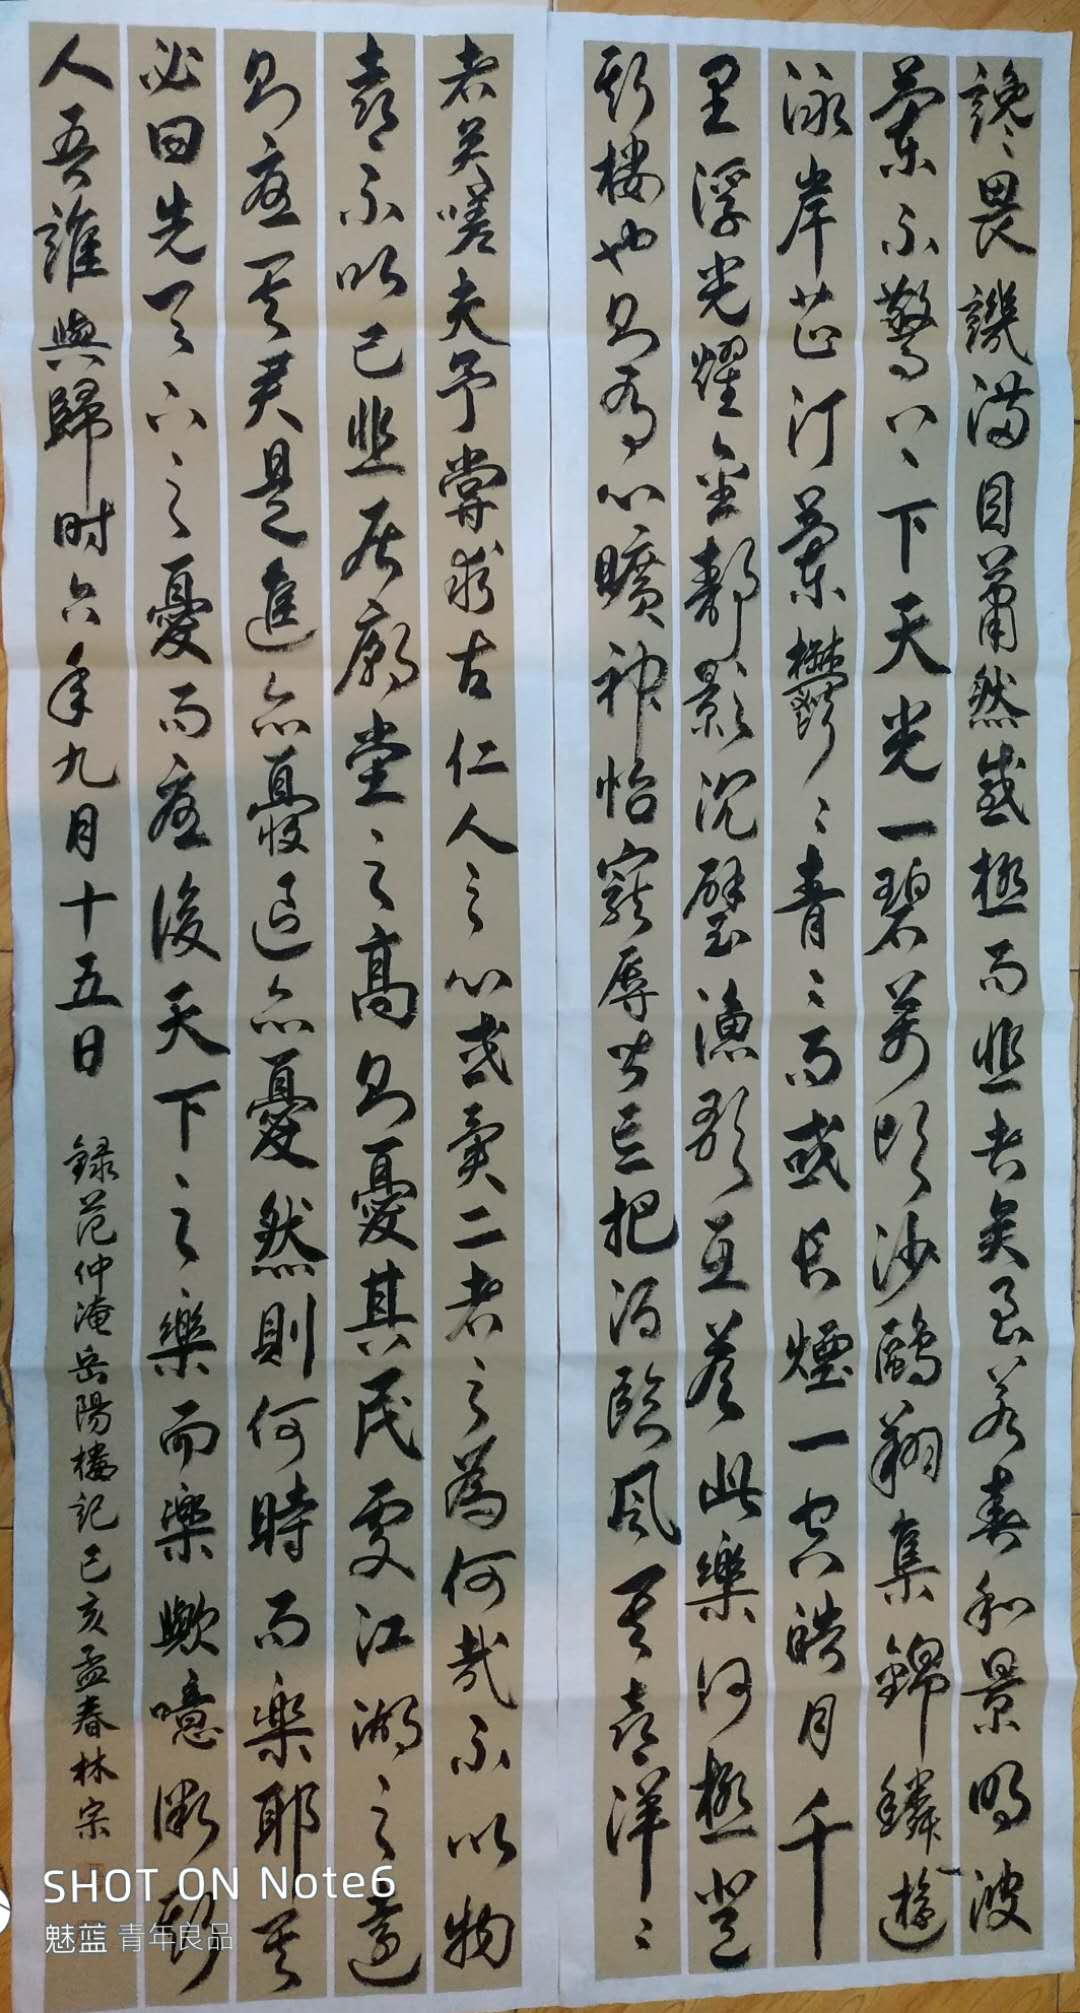 讒畏譏滿目蕭然感極而悲者矣至若春和景明波
蘭不驚上下天光一碧萬頃沙鷗翔集錦鱗遊
泳岸芷汀蘭鬱〻青〻而或長煙一空皓月千
里浮光耀金靜影沉璧漁歌互答此樂何極登
斯樓也則有心曠神怡寵辱皆忘把酒臨風其喜洋〻
者矣嗟夫予嘗求古仁人之心或異二者之為何哉不以物
喜不以己悲居廟堂之高則憂其民處江湖之遠
則憂其君是進亦憂退亦憂然則何時而樂耶其
必曰先天下之憂而憂後天下之樂而樂歟噫微斯
人吾誰與歸时六年九月十五日 録范仲淹岳陽樓記己亥孟春林宗
SHOT ON Note6
魅蓝 青年良品